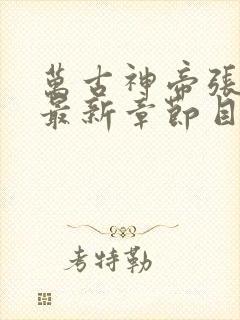 萬古神帝張
最新章節目
考特勒